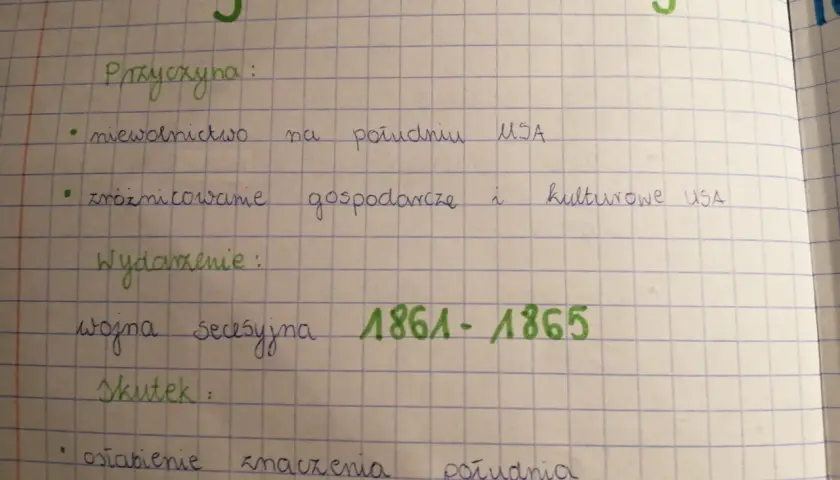 Przyczyna:
• niewolnictwo na południu USA
• zróżnicowanie gospodarcze i kulturowe USA
Wydarzenie:
wojna secesyjna 1861-1865
Skutek:
• osłabienie znaczenia południa